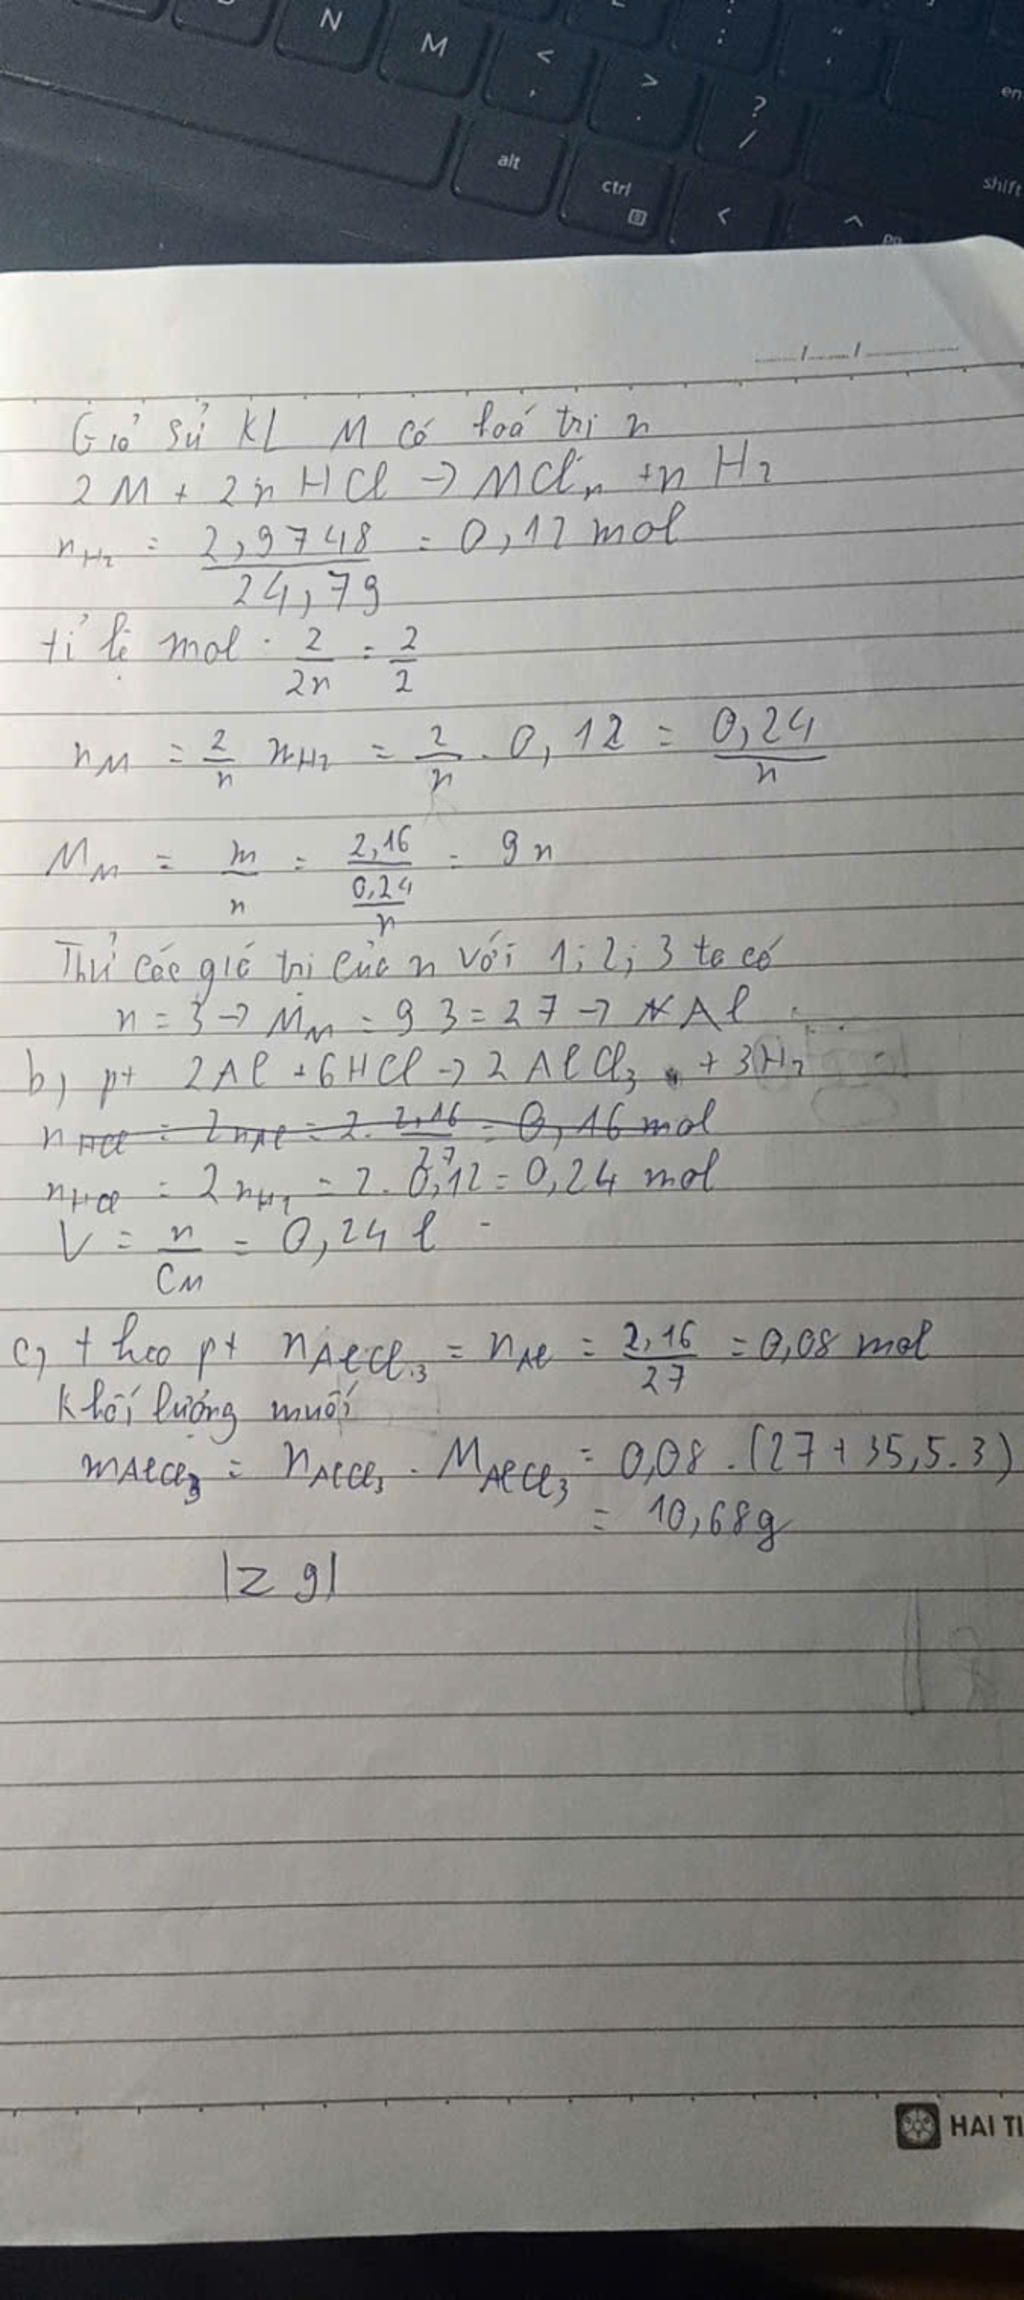 N
M
<
,
>
.
:
;
"
'
?
/
en
alt
ctrl
shift
<
^
Giả sử KL M có hoá trị n
2M + 2n HCl → MCln + n H2
nH2 = 2,9748 / 24,79 = 0,12 mol
tỉ lệ mol : 2/2n = 2/2
nM = 2/n nH2 = 2/n . 0,12 = 0,24/n
MM = m/n = 2,16 / (0,24/n) = 9n
Thử các giá trị của n với 1; 2; 3 ta có
n = 3 → MM = 9 3 = 27 → Al
b, pt 2Al + 6HCl → 2AlCl3 + 3H2
nHCl = 2nAl = 2. 2,16/27 = 0,16 mol
nHCl = 2nH2 = 2. 0,12 = 0,24 mol
V = n/CM = 0,24 l
c, theo pt nAlCl3 = nAl = 2,16/27 = 0,08 mol
Khối lượng muối
mAlCl3 = nAlCl3 . MAlCl3 = 0,08 . (27 + 35,5.3)
= 10,68g
|z g|
HAI TI